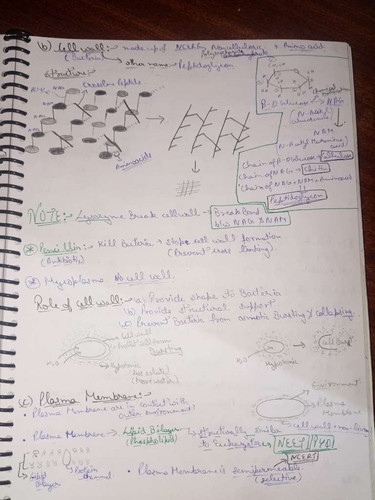 (b) Cell wall:- made up of NAG & Noncellulosic polysaccharide + Amino acid
(Bacteria) other name → Peptidoglycon
Structure:-
Aminoacids
β-D Glucose → NAG
NAM
N-Acetyl Muramic acid
Chain of β-D Glucose → Cellulose
Chain of NAG → Chitin
Chain of NAG + NAM + Aminoacid
Peptidoglycon
NOTE:- Lysozyme Break cell wall → Break Bond b/w NAG & NAM
* Penicillin:- Kill Bacteria → Stops cell wall formation
(Antibiotic) (Prevent cross linking).
* Mycoplasma No cell wall.
Role of cell wall:- a) Provide shape to Bacteria
b) Provide structural support
c) Prevent Bacteria from osmotic Bursting & collapsing.
Bursting
H₂O
Hypotonic
(less solute)
(More water)
H₂O
Hypotonic
Cell Burst
(c) Plasma Membrane:-
• Plasma Membrane are in contact with outer environment.
Environment
Plasma Membrane
Cell wall - non living
• Plasma Membrane → Lipid Bilayer → structurally similar to Eukaryotes
(Phospholipid)
NEET PYQ
NCERT
Lipid Bilayer
Protein channel
• Plasma Membrane is semipermeable
(selective)